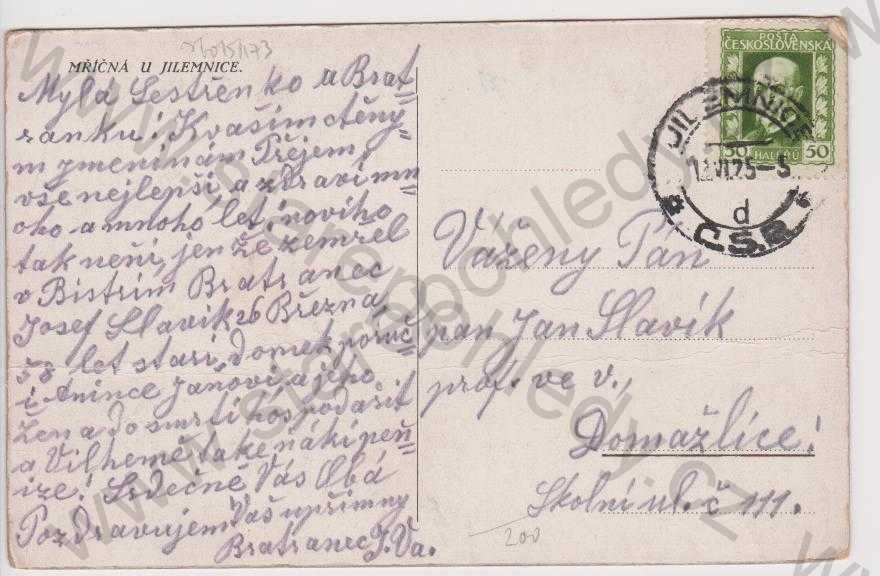 MŘÍČNÁ U JILEMNICE.
Mylá Sestřenko a Brat-
ranku! K vašim ctěný-
m jmeninám Přejem
vše nejlepší, a zdraví mn
oho a mnoho let! nového
tak není, jen že zemřel
v Bistrím Bratranec
Josef Slavík 26 Března,
58 let starí, Domek poruč-
i Anince Janoví, a jeho
Žena do smrtí hospodařit
a Vilhemě také nákí peň-
ize! Srdečně Vás Obá
Pozdravujem Váš upřímny
Bratranec J. Va.
POŠTA
ČESKOSLOVENSKÁ
50 HALÉŘŮ 50
JILEMNICE
12.VI.25-5
d
Č.S.R.
Važeny Pán
pan Jan Slavík
prof. ve v.,
Domažlíce!
Školní ul. č 111.
200
www.starepohledy.cz